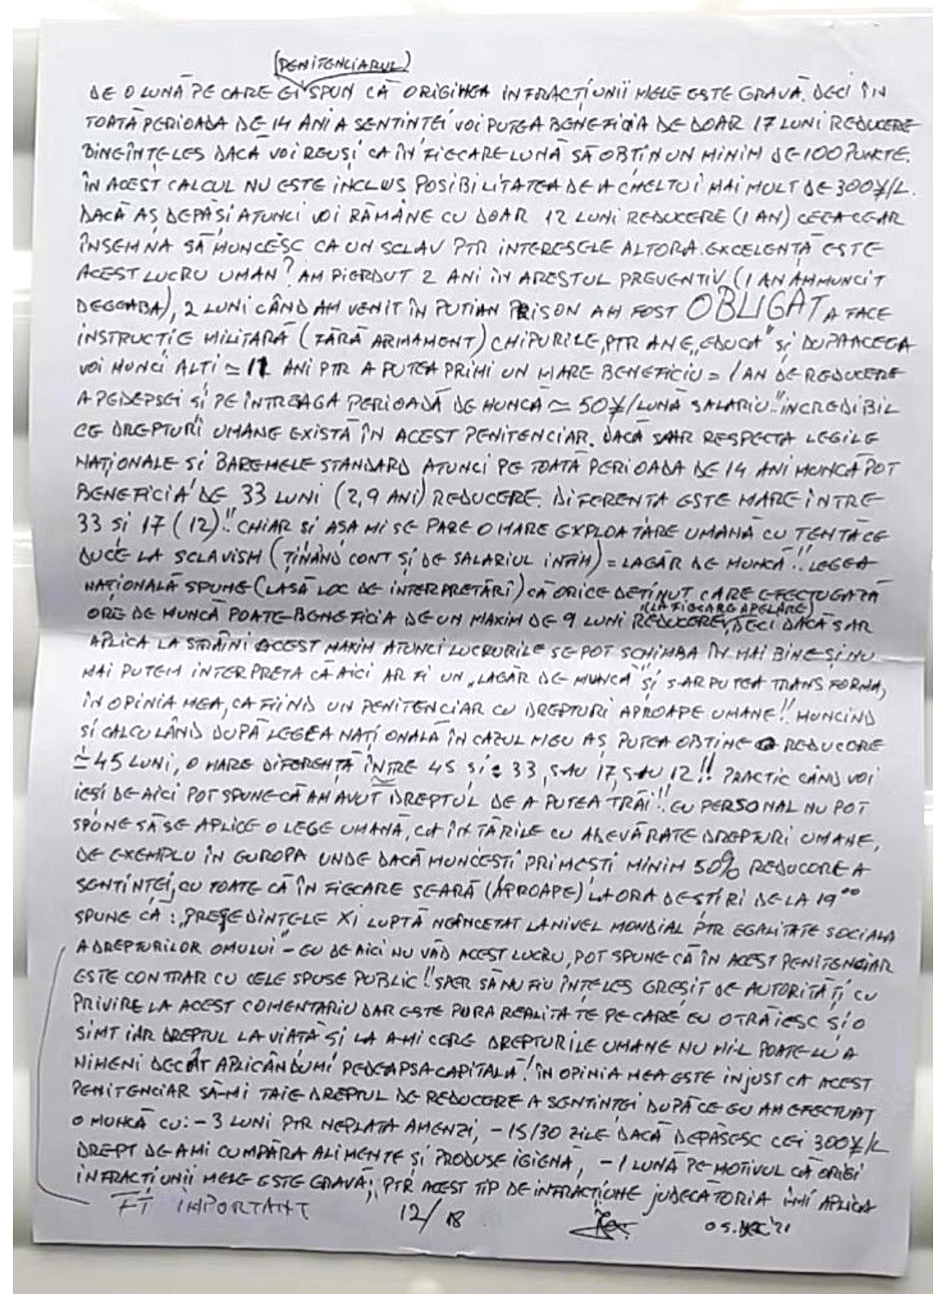 (PENITENCIARUL)
DE O LUNĂ PE CARE EI SPUN CĂ ORIGINEA INFRACȚIUNII MELE ESTE GRAVĂ. DECI ÎN
TOATĂ PERIOADA DE 14 ANI A SENTINTEI VOI PUTEA BENEFICIA DE DOAR 17 LUNI REDUCERE
BINEÎNTELES DACĂ VOI REUȘI CA ÎN FIECARE LUNĂ SĂ OBTIN UN MINIM DE 100 PUNCTE.
ÎN ACEST CALCUL NU ESTE INCLUS POSIBILITATEA DE A CHELTUI MAI MULT DE 300¥/L.
DACĂ AȘ DEPĂȘI ATUNCI VOI RĂMÂNE CU DOAR 12 LUNI REDUCERE (1 AN) CEEA CE AR
ÎNSEMNA SĂ MUNCESC CA UN SCLAV PTR INTERESELE ALTORA. EXCELENTĂ ESTE
ACEST LUCRU UMAN? AM PIERDUT 2 ANI ÎN ARESTUL PREVENTIV (1 AN AM MUNCIT
DEGEABA), 2 LUNI CÂND AM VENIT ÎN PUTIAN PRISON AM FOST OBLIGAT A FACE
INSTRUCTIE MILITARĂ (FĂRĂ ARMAMENT) CHIPURILE, PTR A NE „EDUCA" ȘI DUPĂ ACEEA
VOI MUNCI ALTI ≃ 11 ANI PTR A PUTEA PRIMI UN MARE BENEFICIU = 1 AN DE REDUCERE
A PEDEPSEI ȘI PE ÎNTREAGA PERIOADĂ DE MUNCĂ ≃ 50¥/LUNĂ SALARIU." INCREDIBIL
CE DREPTURI UMANE EXISTĂ ÎN ACEST PENITENCIAR. DACĂ S-AR RESPECTA LEGILE
NAȚIONALE SI BAREMELE STANDARD ATUNCI PE TOATĂ PERIOADA DE 14 ANI MUNCĂ POT
BENEFICIA DE 33 LUNI (2,9 ANI) REDUCERE. DIFERENTA ESTE MARE ÎNTRE
33 SI 17 (12)!! CHIAR SI ASA MI SE PARE O MARE EXPLOATARE UMANĂ CU TENTĂ CE
DUCE LA SCLAVISM (ȚINÂND CONT ȘI DE SALARIUL INFIM) = LAGĂR DE MUNCĂ!! LEGEA
NAȚIONALĂ SPUNE (LASĂ LOC DE INTERPRETĂRI) CĂ ORICE DEȚINUT CARE EFECTUEAZĂ
ORE DE MUNCĂ POATE BENEFICIA DE UN MAXIM DE 9 LUNI REDUCERE (LA FIECARE APELARE), DECI DACĂ S AR
APLICA LA STRĂINI ACEST MAXIM ATUNCI LUCRURILE SE POT SCHIMBA ÎN MAI BINE ȘI NU
MAI PUTEM INTERPRETA CĂ AICI AR FI UN „LAGĂR DE MUNCĂ" ȘI S-AR PUTEA TRANSFORMA,
ÎN OPINIA MEA, CA FIIND UN PENITENCIAR CU DREPTURI APROAPE UMANE!! MUNCIND
SI CALCULÂND DUPĂ LEGEA NAȚIONALĂ ÎN CAZUL MEU AȘ PUTEA OBTINE REDUCERE
≃ 45 LUNI, O MARE DIFERENȚĂ ÎNTRE 45 SI ≃ 33, SAU 17, SAU 12!! PRACTIC CÂND VOI
IEȘI DE AICI POT SPUNE CĂ AM AVUT DREPTUL DE A PUTEA TRĂI!! EU PERSONAL NU POT
SPUNE SĂ SE APLICE O LEGE UMANĂ, CA ÎN ȚĂRILE CU ADEVĂRATE DREPTURI UMANE,
DE EXEMPLU ÎN EUROPA UNDE DACĂ MUNCEȘTI PRIMESTI MINIM 50% REDUCERE A
SENTINTEI, CU TOATE CĂ ÎN FIECARE SEARĂ (APROAPE) LA ORA DE STIRI DE LA 19⁰⁰
SPUNE CĂ: „PREȘEDINTELE XI LUPTĂ NEÎNCETAT LA NIVEL MONDIAL PTR EGALITATE SOCIALA
A DREPTURILOR OMULUI" – EU DE AICI NU VĂD ACEST LUCRU, POT SPUNE CĂ ÎN ACEST PENITENCIAR
ESTE CONTRAR CU CELE SPUSE PUBLIC!! SPER SĂ NU FIU ÎNȚELES GREȘIT DE AUTORITĂȚI CU
PRIVIRE LA ACEST COMENTARIU DAR ESTE PURA REALITATE PE CARE EU O TRĂIESC ȘI O
SIMT IAR DREPTUL LA VIATĂ ȘI LA A-MI CERE DREPTURILE UMANE NU MI-L POATE LUA
NIMENI DECÂT APLICÂNDU-MI PEDEAPSA CAPITALĂ! ÎN OPINIA MEA ESTE INJUST CA ACEST
PENITENCIAR SĂ-MI TAIE DREPTUL DE REDUCERE A SENTINTEI DUPĂ CE EU AM EFECTUAT
O MUNCĂ CU: – 3 LUNI PTR NEPLATA AMENZI, – 15/30 ZILE DACĂ DEPĂȘESC CEI 300¥/L
DREPT DE A-MI CUMPĂRA ALIMENTE ȘI PRODUSE IGIENĂ, – 1 LUNĂ PE MOTIVUL CĂ ORIGI
INFRACȚIUNII MELE ESTE GRAVĂ; PTR ACEST TIP DE INFRACȚIUNE JUDECĂTORIA ÎMI APLICA
FT IMPORTANT 12/18 05.DEC'21